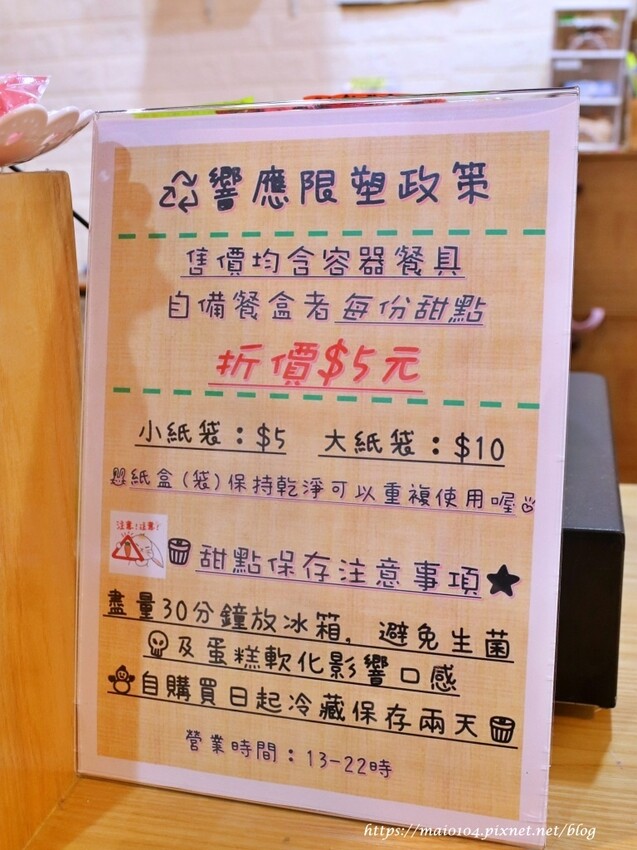 響應限塑政策
售價均含容器餐具
自備餐盒者每份甜點
折價$5元
小紙袋：$5 大紙袋：$10
紙盒(袋)保持乾淨可以重複使用喔
注意!注意!
甜點保存注意事項★
盡量30分鐘放冰箱，避免生菌
及蛋糕軟化影響口感
自購買日起冷藏保存兩天
營業時間：13-22時
https://maio104.pixnet.net/blog